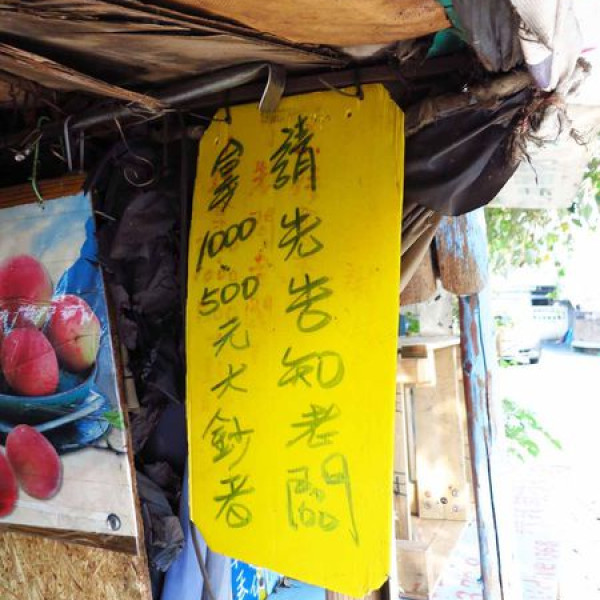 請先告知老闆
拿1000.500元大鈔者